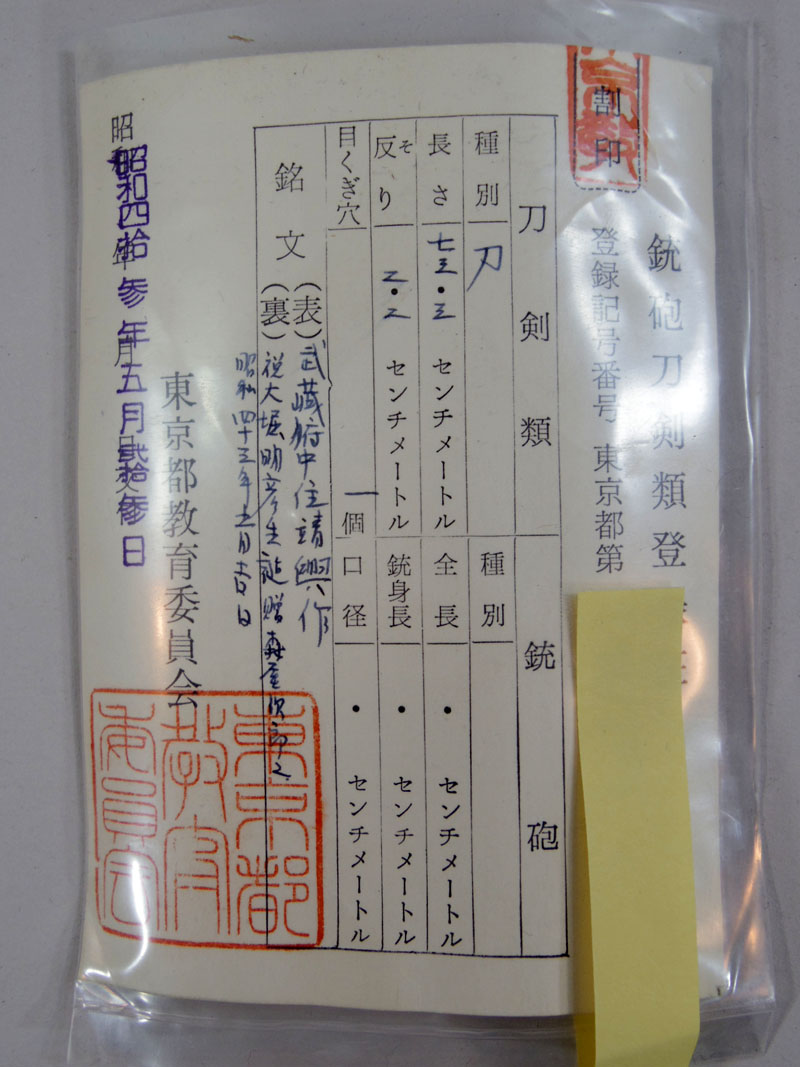 割印
銃砲刀剣類登
登録記号番号 東京都第
刀剣類
銃砲
種別 刀
種別
長さ 七三・三 センチメートル
全長 ・ センチメートル
反り そ 二・二 センチメートル
銃身長 ・ センチメートル
目くぎ穴 一個
口径 ・ センチメートル
銘文
(表) 武蔵府中住靖興作
(裏) 祝大堀明彦生誕贈森重次郎之
昭和四十三年吉日
東京都教育委員会
昭和四拾参年五月弐拾参日
東京都教育委員会